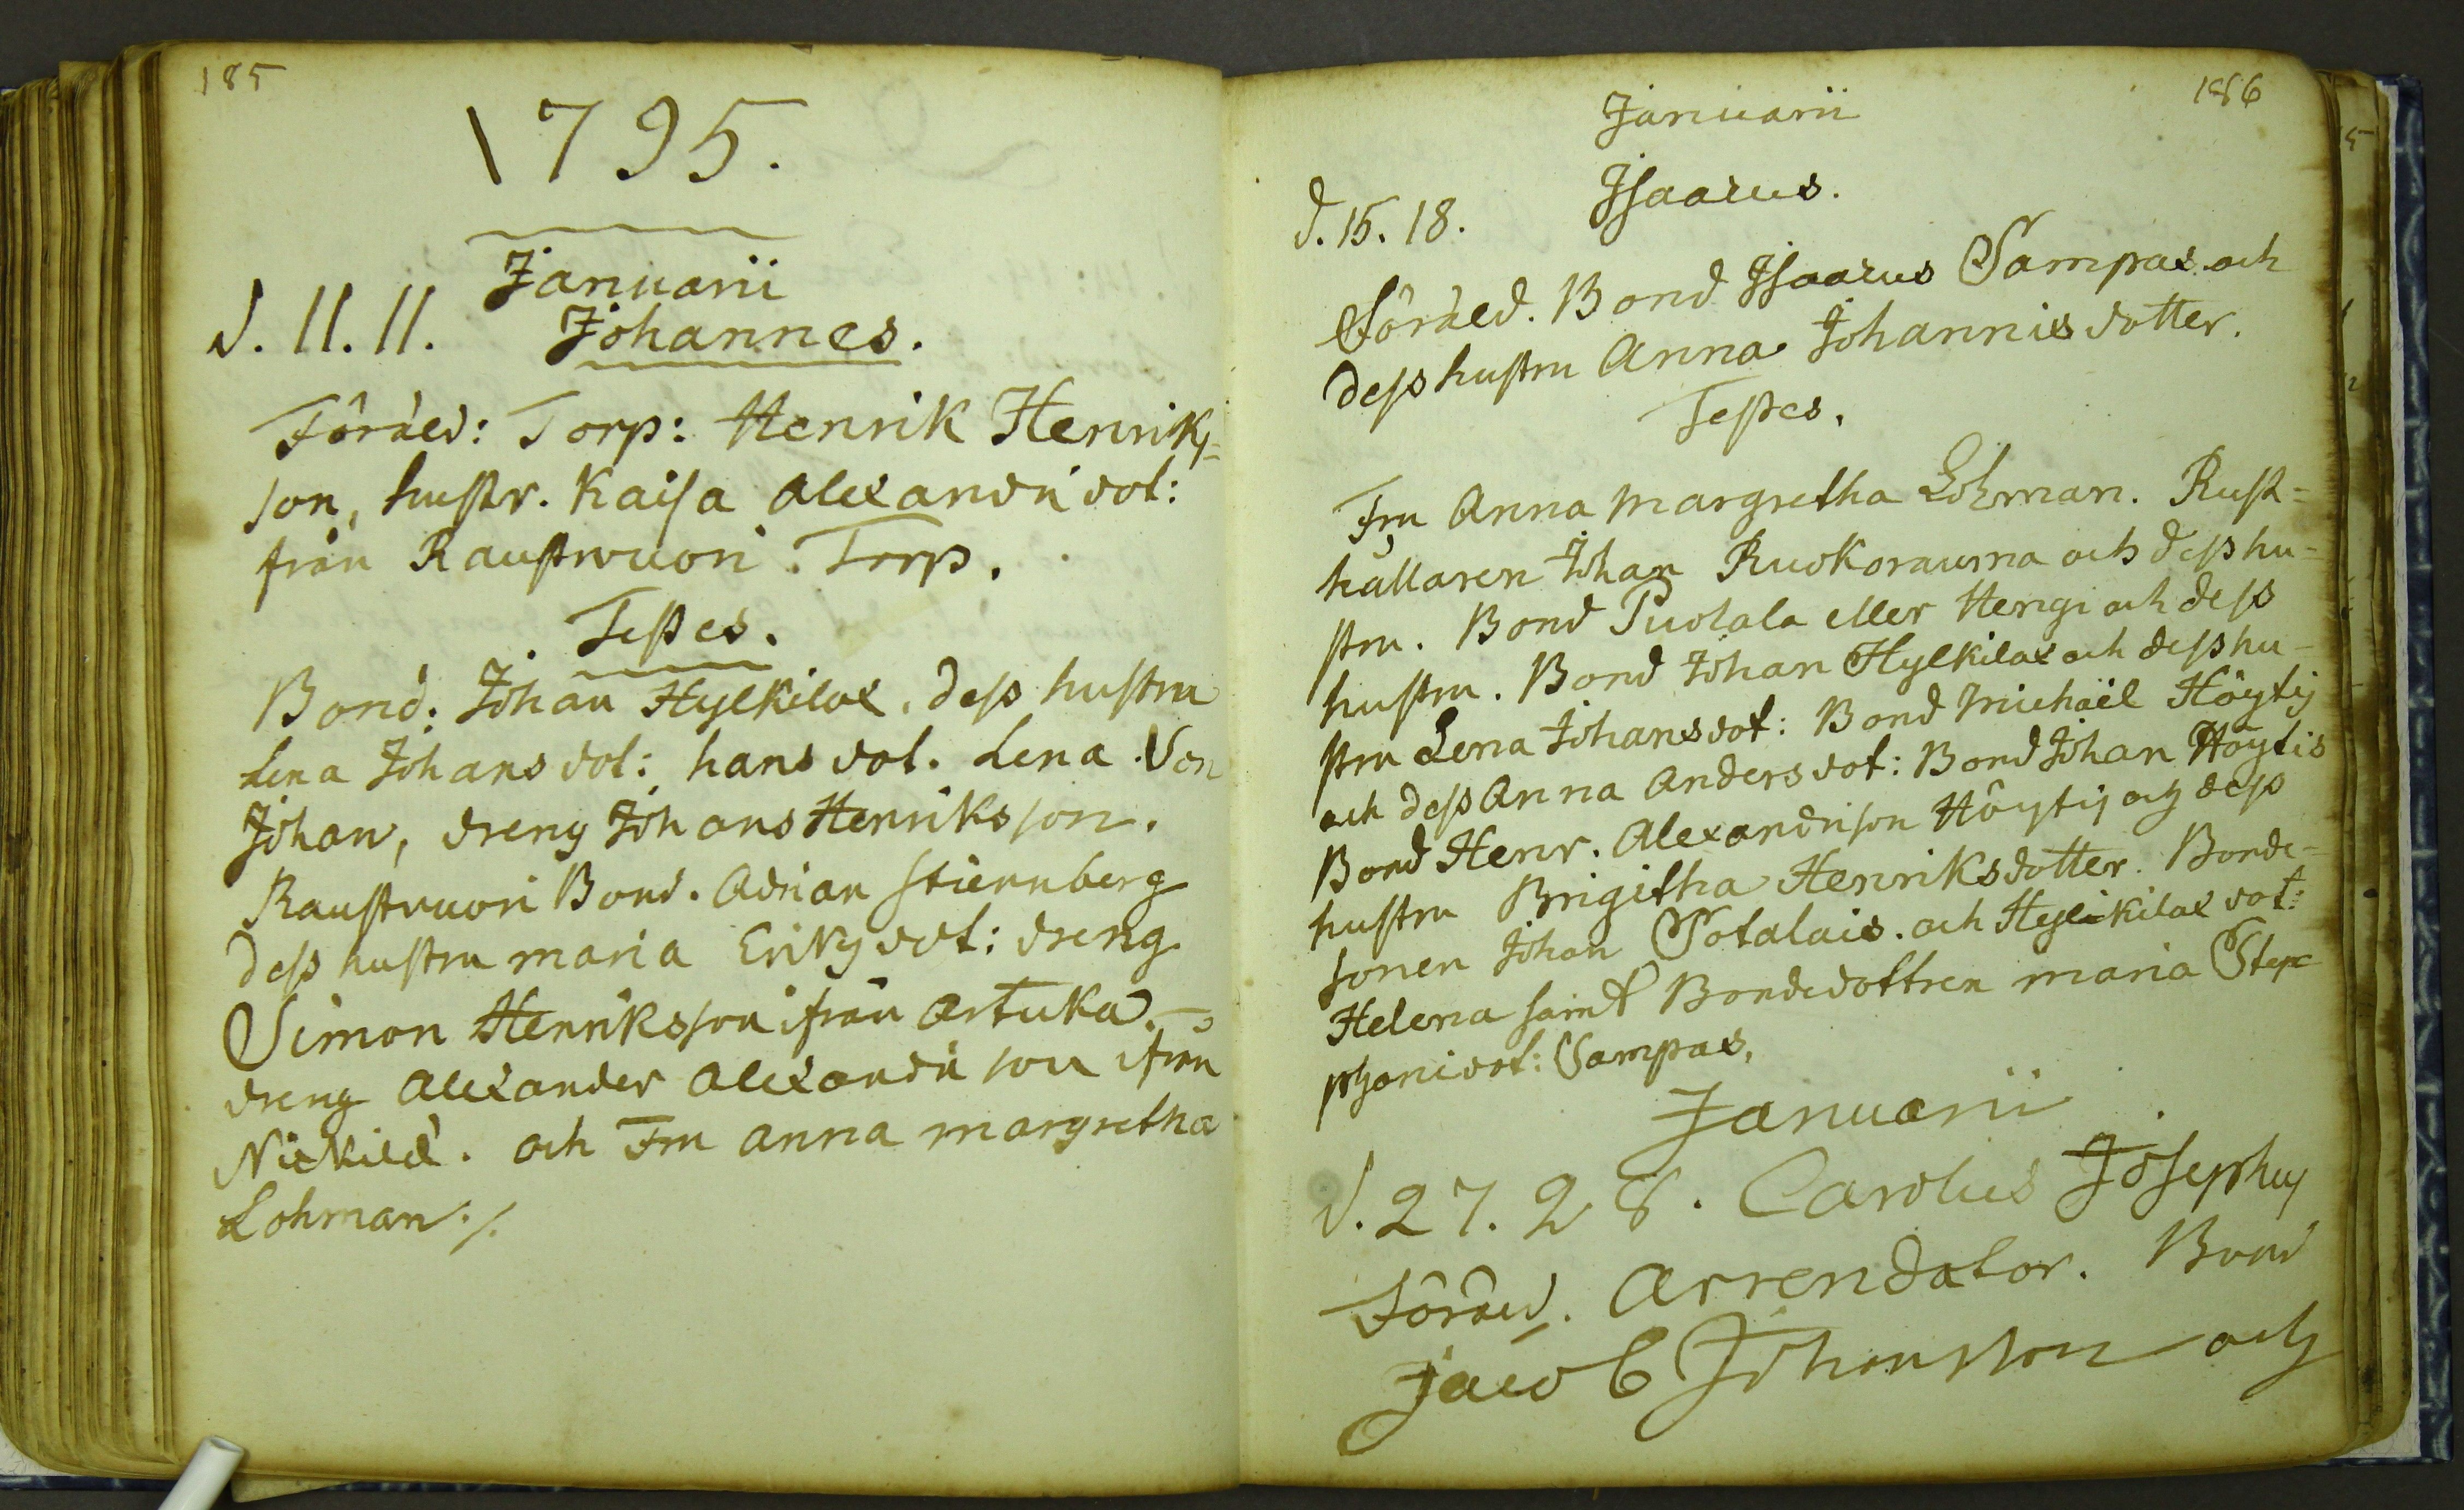 185
1795.
Januarii
d. 11. 11. Johannes.
Föräld: Torp: Henrik Henriks=
son, hustr. Kaisa Alexandri dot:
från Raustwuori Torp.
Testes.
Bond. Johan Hylkilax, dess hustru
Lena Johans dot: hans dot. Lena. Son
Johan, dreng Johans Henriksson.
Raustvuori Bond. Adrian Stiernberg
dess hustru maria Eriks dot: dreng
Simon Henriksson ifrån Artuka.
dreng Alexander Alexandri son ifrån
Nickilä. och Fru anna margretha
Lohman./.
186
Januarii
d. 15. 18. Isaacus.
Föräld. Bond Isaacus Sampas och
dess hustru Anna Johannis dotter.
Testes.
Fru Anna margretha Lohman. Rust=
hållaren Johan Ruokorauma och dess hu=
stru. Bond Puolala eller Hengi och dess
hustru. Bond Johan Hylkilax och dess hu=
stru Lena Johans dot: Bond Michaël Höytij
och dess Anna Anders dot: Bond Johan Höytis
Bond Henr. Alexandrison Höytij och dess
hustru Brigitha Henriksdotter. Bonde=
sonen Johan Sotalais. och Hylikilax dot:
Helena samt Bondedottren maria Step=
phani dot: Sampas,
Januarii
d. 27. 28. Carolus Josephus
Föräld. Arrendator. Bond
Jacob Johansson och